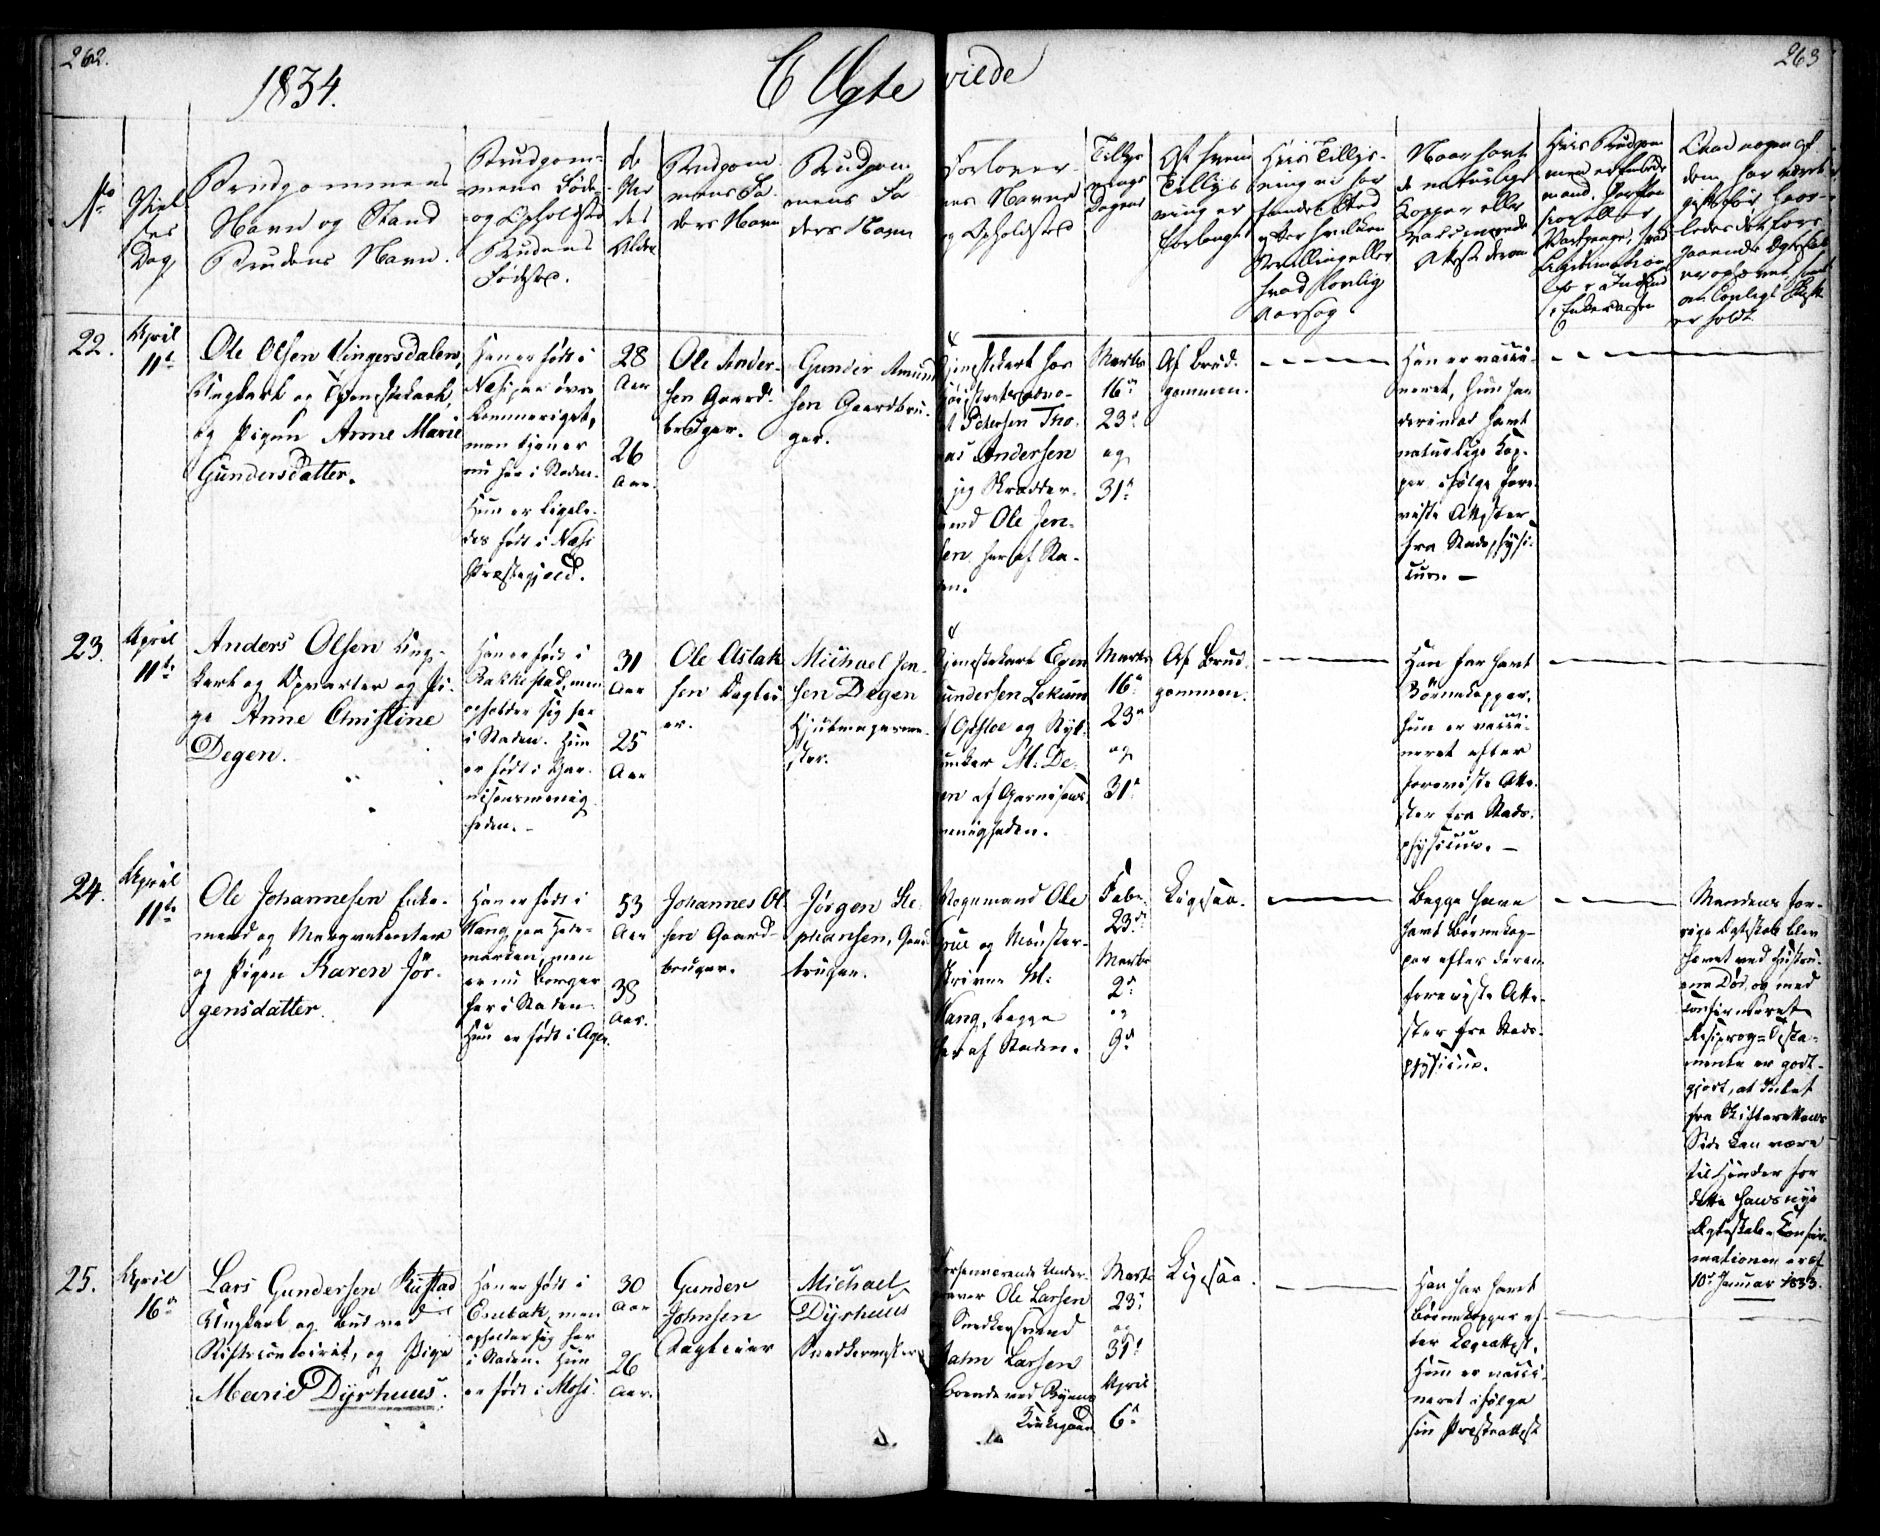 262.
1834.
C Ægte
vilde
263
No
Viel
ses
Dag
Brudgommens
Navn og Stand
Brudens Navn.
Brudgom-
mens Føde
og Opholdsted
Brudens
Fødsted.
de
des
Alder
Brudgom
mens Fa
ders Navn
Brudgom
mens Fa
ders Navn
Forlover
nes Navne
og Opholdsted
Tillys
nings
Dagene
Af hvem
Tillys
ning er
forlanget
Hvis Tillys-
ning ei har
fundet Sted
Naar havt
de naturlige
Kopper eller
vaccinerede
Attest derom
22.
April
11t
Ole Olsen Vingersdalen,
Ungkarl og Tjenestekarl,
og Pigen Anne Marie
Gundersdatter.
Han er født i
Næs paa øvre
Rommeriget,
men tjener
nu her i Staden.
Hun er ligele-
des født i Næs
Præstegjeld.
28
Aar
26
Aar.
Ole Ander-
sen Gaard-
bruger.
Gunder Amund
sen Gaardbru-
ger.
Tjenestekarl hos
Petersen Tho-
mas Andersen
og Skrædder-
svend Ole Jen-
sen her af Sta-
den.
Marts
16de
23d
og
31te
Af Brud-
gommen.
Han er vacci-
neret, Hun har
derimod havt
naturlige Kop-
per ifølge fore-
viste Attester
fra Stadsphysi-
cus. —
23.
April
11te
Anders Olsen Ung-
karl og Opvarter og Pi-
ge Anne Christine
Degen.
Han er født i
Rakkestad, men
opholder sig her
i Staden. Hun
er født i Gar-
nisonsmenig
heden. –
31
Aar
25
Aar
Ole Aslak
sen Daglei
er.
Michael Jen-
sen Degen
Hjulmagerme-
ster.
Tjenestekarl Even
Gundersen Lekum
af Opsloe og
M. De-
gen af Garnisons
menigheden.
Marts
16de
23de
og
31te
Af Brud-
gommen.
Han har havt
Børnekopper,
hun er vacci-
neret efter
foreviste Atte-
ster fra Stads-
physicus. —
24.
April
11te
Ole Johannesen Enke-
mand og
og Pigen Karen Jør-
gensdatter.
Han er født i
Vang paa Hede-
marken, men
er nu Borger
her i Staden
Hun er født i Ager.
53
Aar
38
Aar.
Johannes Ol
sen Gaard-
bruger.
Jørgen Ste-
phansen, Gaard
bruger.
Vognmand Ole
Grue og Mønster-
skriver M:
Vang, begge
her af Staden.
Febr.
23de
Marts
2d
og
9d
Ligesaa.
Begge have
havt Børnekop-
per efter deres
foreviste Atte-
ster fra Stads-
physicus.
Mandens for-
rige Ægteskab blev
hævet ved Hustru-
ens Død, og med
confirmeret
Resiprog-Testa-
mente er godt-
gjort, at Intet
fra Skifterettens
Side kan være
til Hinder for
dette hans nye
Ægteskab. Confir-
mationen er af
10d Januar 1833.
25.
April
16de
Lars Gundersen Rustad
Ungkarl og Bud ved
Stiftscontoiret, og Pige
Marie Dyrhuus.
Han er født i
Enebak, men
opholder sig her
i Staden. Hun
er født i Moss.
30
Aar
26
Aar.
Gunder
Johnsen
Dagleier
Michael
Dyrhuus
Snedkermester
Forhenværende Under-
Ole Larsen
Snedkersvend
Larsen
boende ved Byens
Kirkegaard
Marts
23d
og
31d
April
6te
Ligesaa.
Han har havt
Børnekopper ef-
ter Lægeattest.
Hun er vacci-
neret ifølge
sin Præsteattest